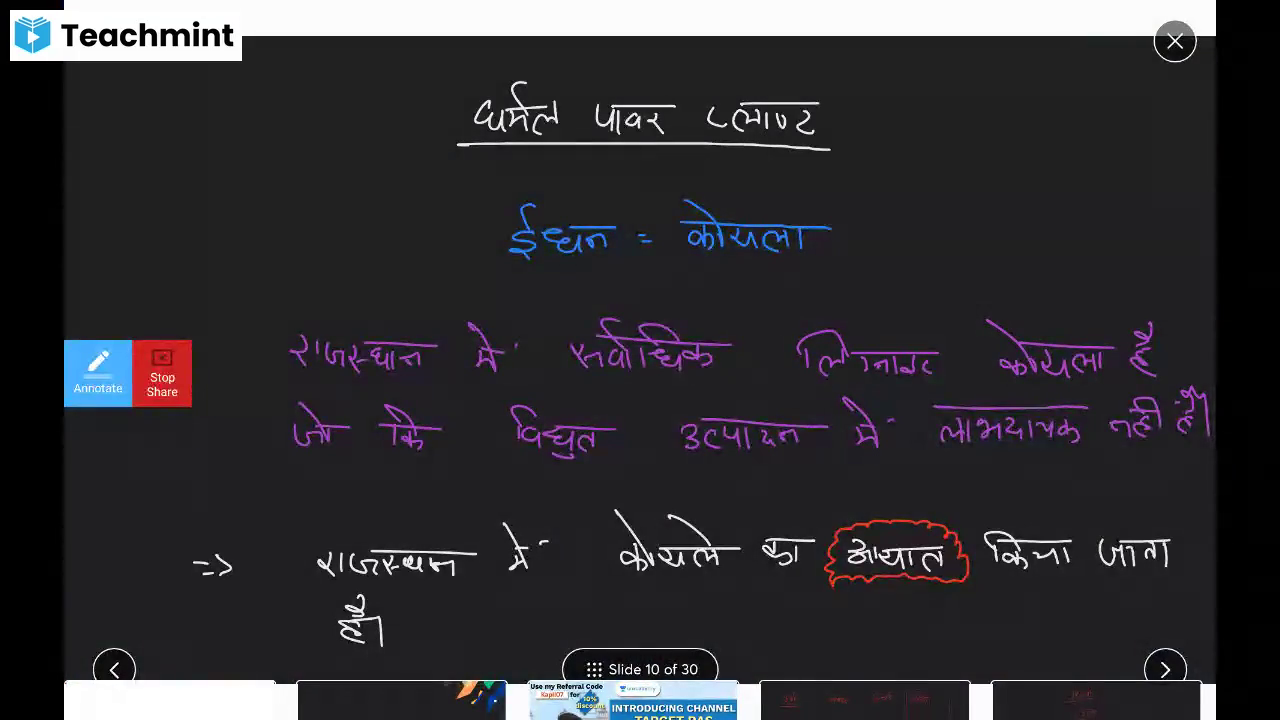 Teachmint
थर्मल पावर प्लाण्ट
ईंधन = कोयला
राजस्थान में सर्वाधिक लिग्नाइट कोयला है
जो कि विद्युत उत्पादन में लाभदायक नहीं है।
Annotate
Stop Share
=> राजस्थान में कोयले का आयात किया जाता
है।
Slide 10 of 30
Use my Referral Code
Kapil07
10%
discount
unacademy
INTRODUCING CHANNEL
TARGET RAS